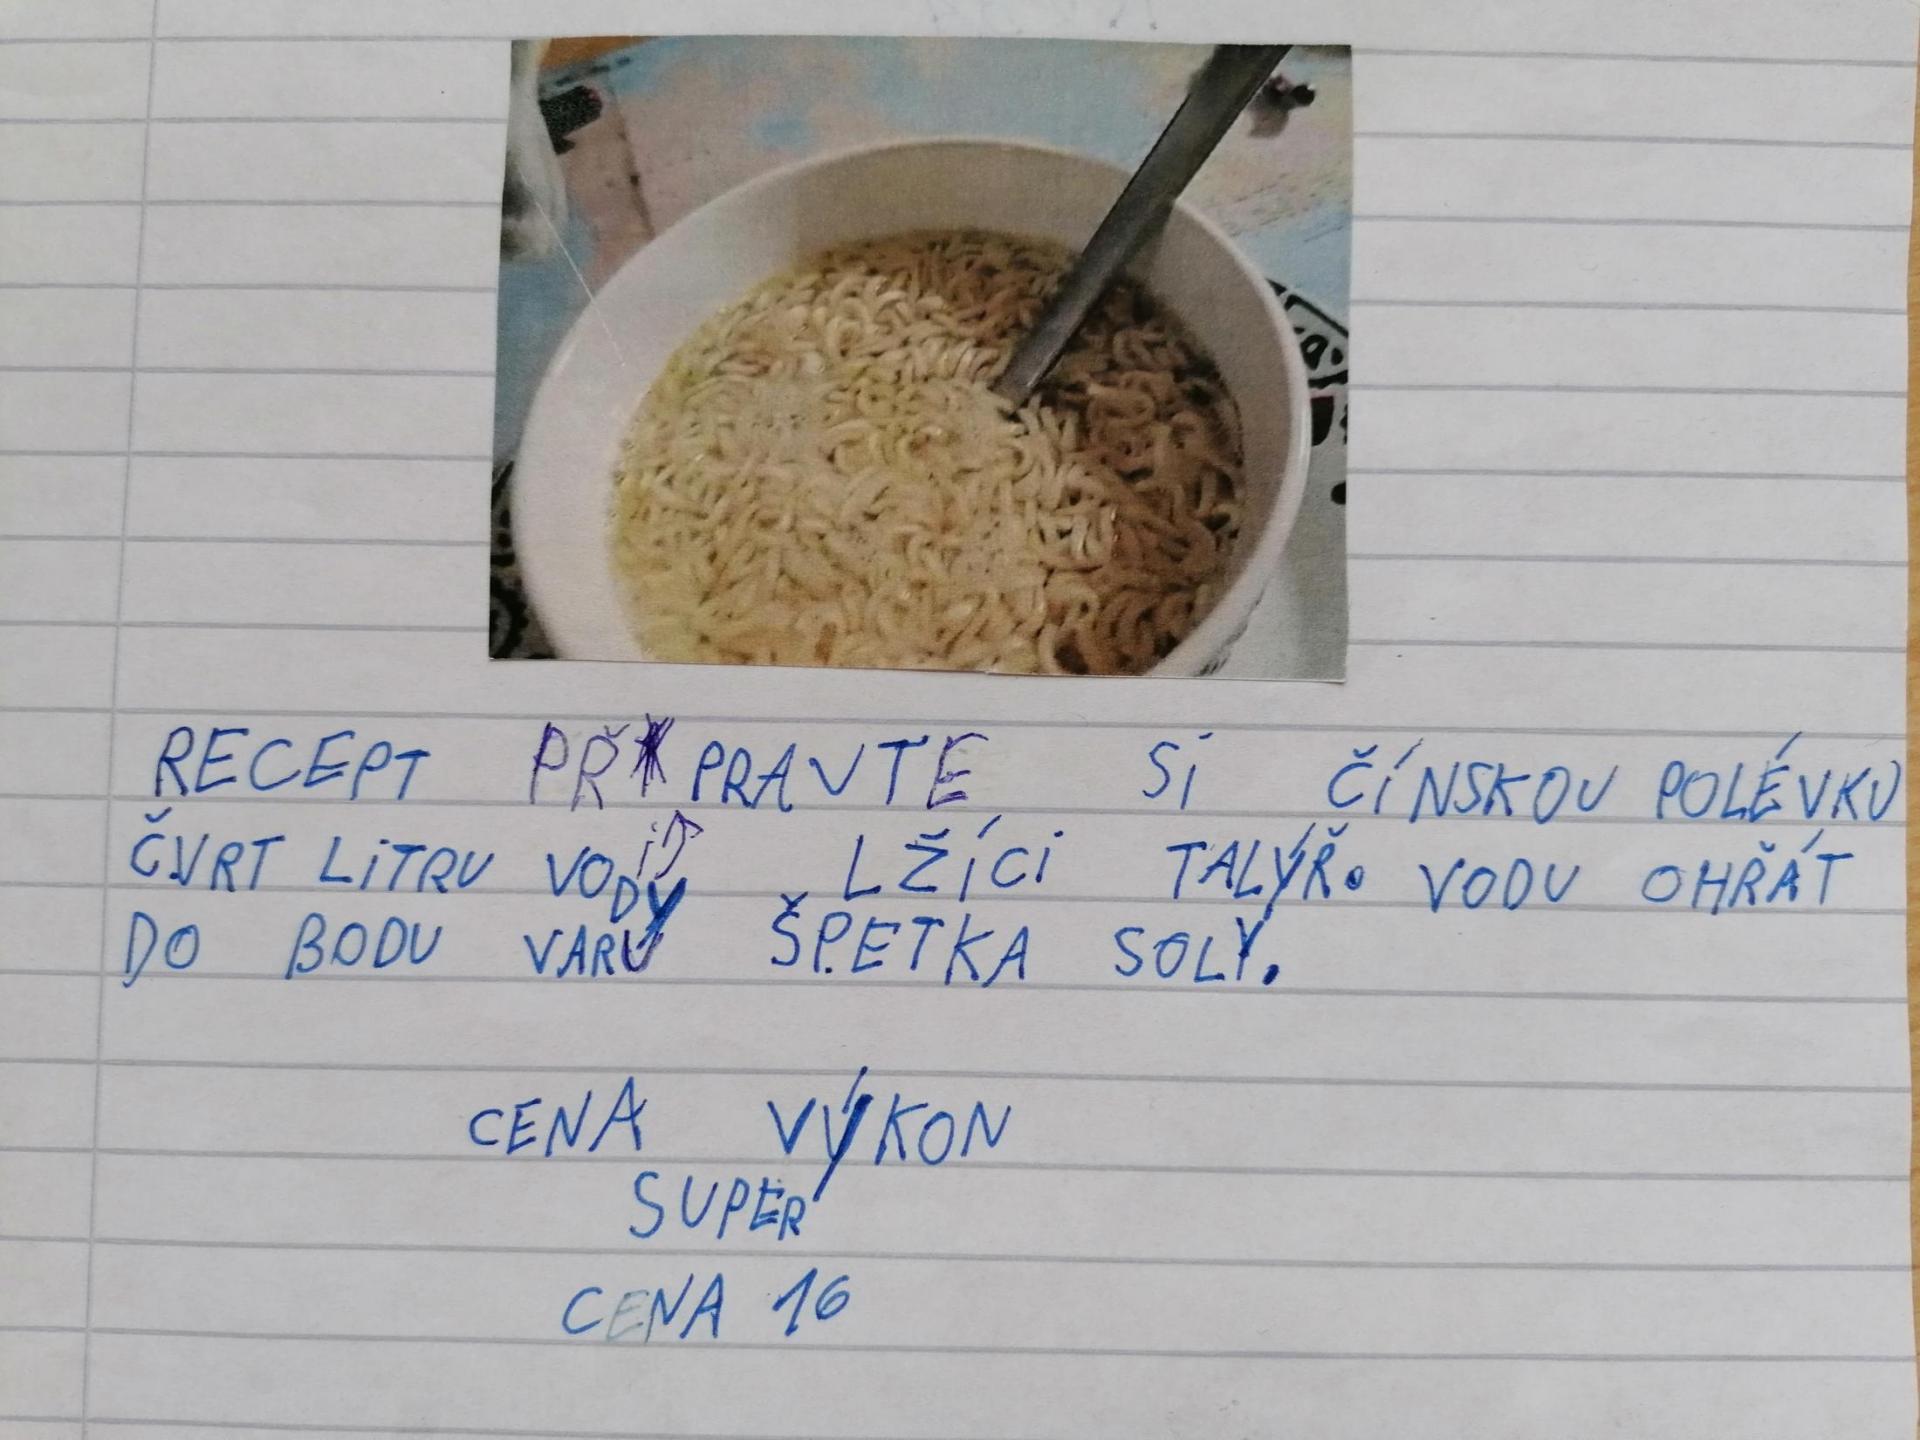 RECEPT PŘIPRAVTE Si ČÍNSKOU POLÉVKU
ČVRT LiTRU VODY LŽÍCi TALÝŘ. VODU OHŘÁT
DO BODU VARU ŠPETKA SOLY.
CENA VÝKON
SUPER
CENA 16